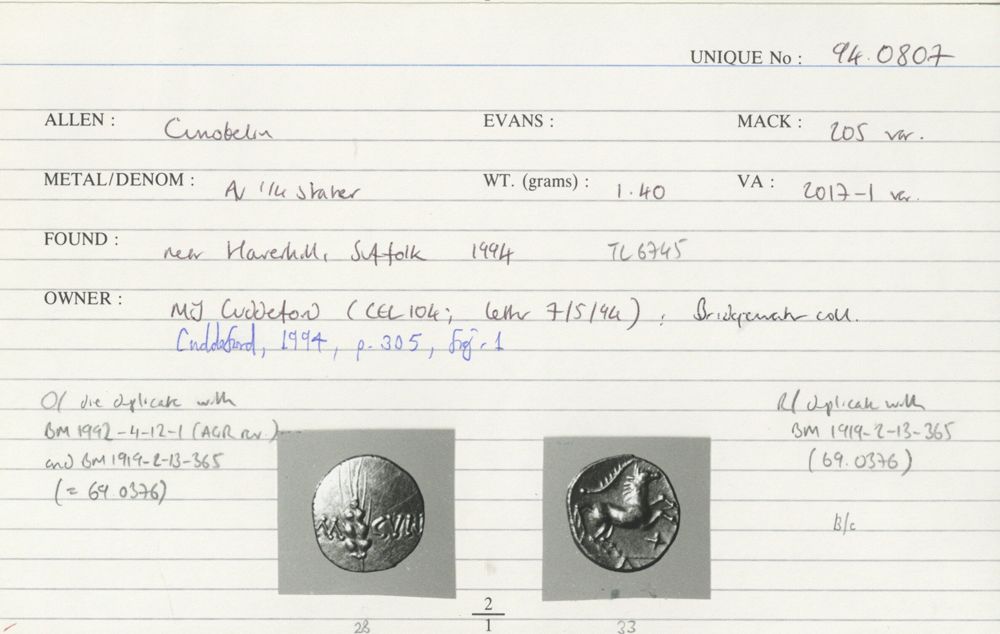 UNIQUE No : 94.0807
ALLEN : Cunobelin EVANS : MACK : 205 var.
METAL/DENOM : AV 1/4 stater WT. (grams) : 1.40 VA : 2017-1 var.
FOUND : near Haverhill, Suffolk 1994 TL6745
OWNER : MJ Cuddeford (CEL 104; letter 7/5/94); Bridgewater coll.
Cuddeford, 1994, p.305, fig.1
O/ die duplicate with
BM 1992-4-12-1 (AGR rev.)
and BM 1919-2-13-365
(= 69.0376)
R/ duplicate with
BM 1919-2-13-365
(69.0376)
B/c
CVN
2
1
28
33